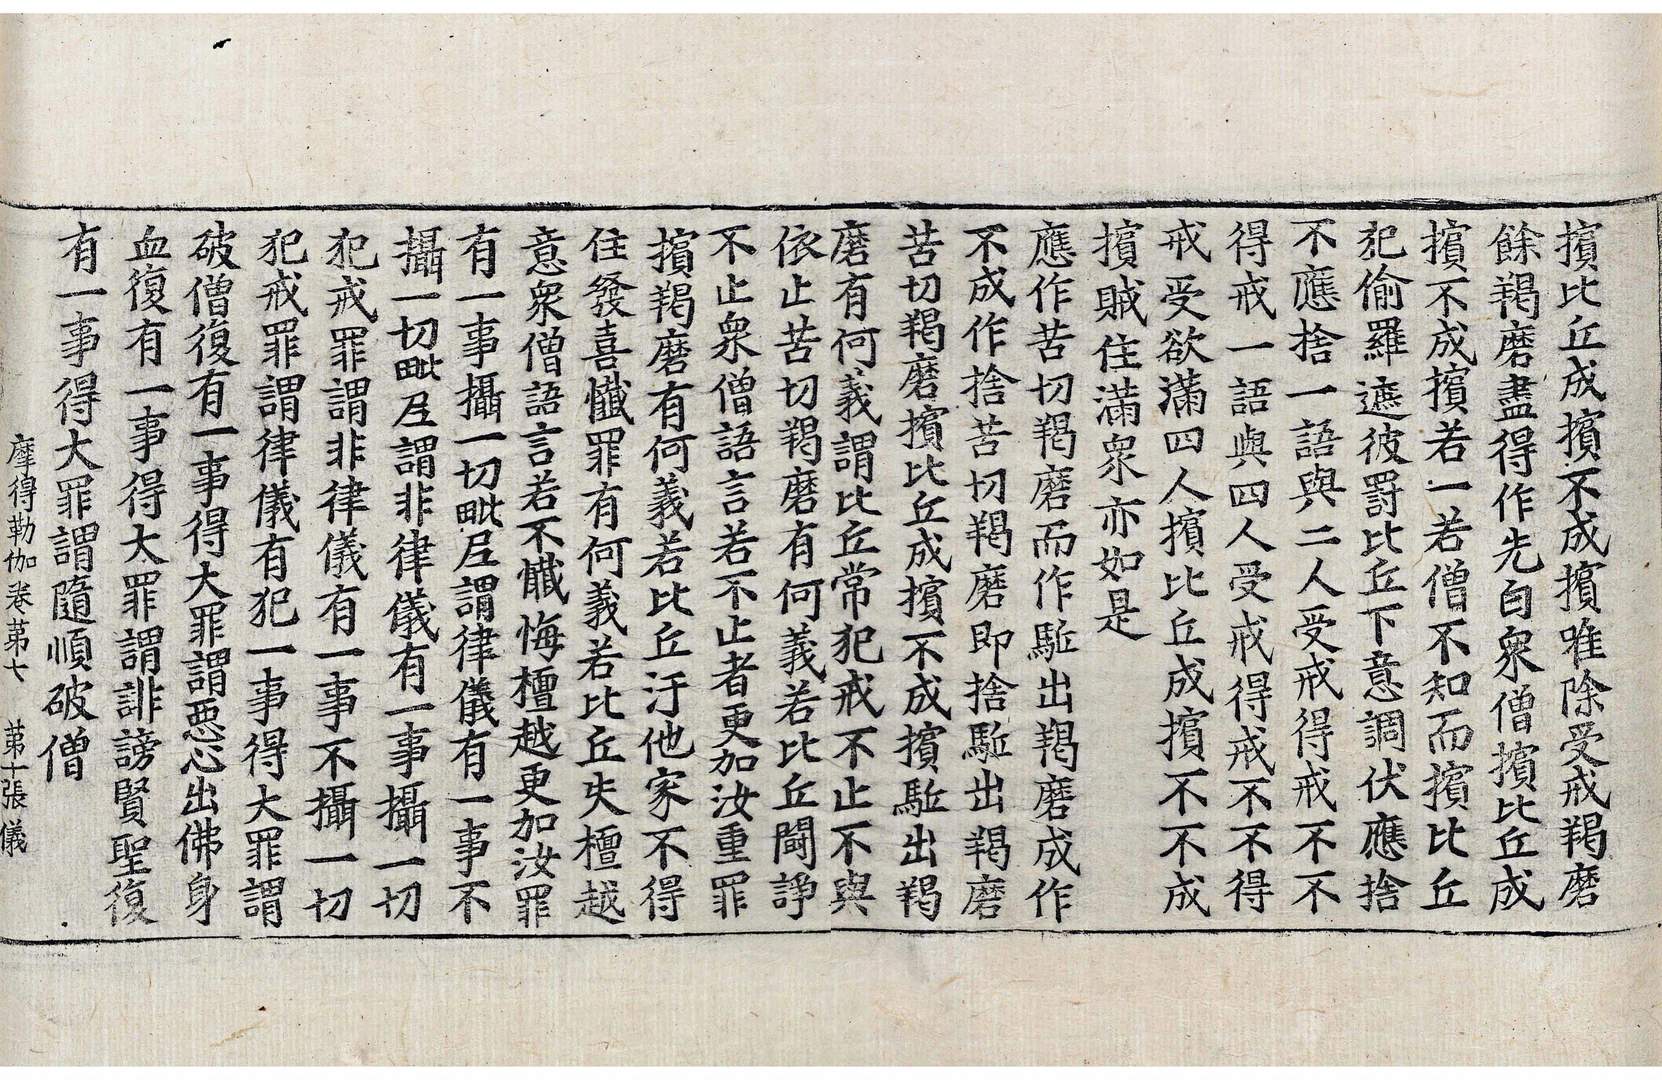 擯比丘成擯不成擯唯除受戒羯磨
餘羯磨盡得作先白衆僧擯比丘成
擯不成擯若一若僧不知而擯比丘
犯偷羅遮彼罰比丘下意調伏應捨
不應捨一語與二人受戒得戒不不
得戒一語與四人受戒得戒不不得
戒受欲滿四人擯比丘成擯不不成
擯賊住滿衆亦如是
應作苦切羯磨而作駈出羯磨成作
不成作捨苦切羯磨即捨駈出羯磨
苦切羯磨擯比丘成擯不成擯駈出羯
磨有何義謂比丘常犯戒不止不與
依止苦切羯磨有何義若比丘鬪諍
不止衆僧語言若不止者更加汝重罪
擯羯磨有何義若比丘汙他家不得
住發喜懺罪有何義若比丘失檀越
意衆僧語言若不懺悔檀越更加汝罪
有一事攝一切毗尼謂律儀有一事不
攝一切毗尼謂非律儀有一事攝一切
犯戒罪謂非律儀有一事不攝一切
犯戒罪謂律儀有犯一事得大罪謂
破僧復有一事得大罪謂惡心出佛身
血復有一事得大罪謂誹謗賢聖復
有一事得大罪謂隨順破僧
摩得勒伽卷第七 第十張 儀